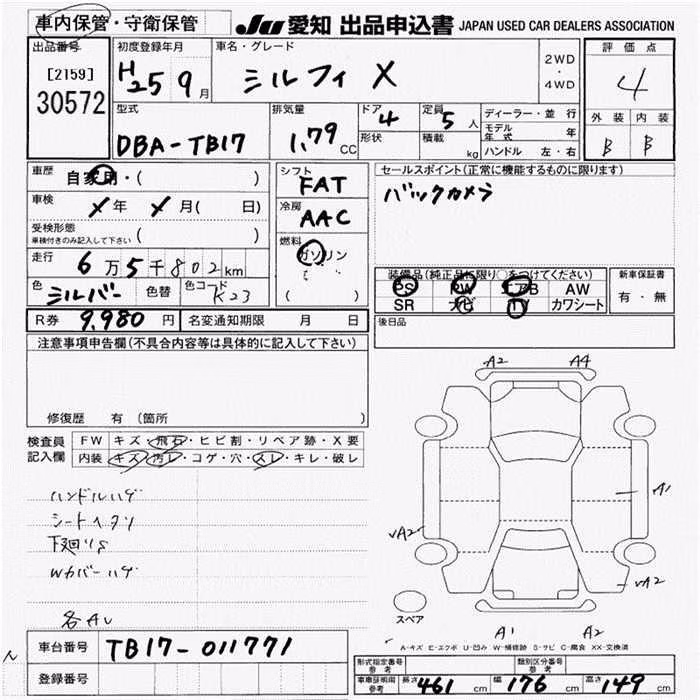 車内保管・守衛保管
JU 愛知 出品申込書 JAPAN USED CAR DEALERS ASSOCIATION
出品番号
[2159]
30572
初度登録年月
H25 9月
車名・グレード
シルフィ X
2WD
・
4WD
評価点
4
外装 内装
B B
型式
DBA-TB17
排気量
1.79 CC
ドア
4
形状
定員
5 人
積載
kg
ディーラー・並行
モデル年式 年
ハンドル 左・右
車歴
自家用・( )
車検
X年 X月( 日)
受検形態
車検付きのみ記入して下さい ( )
走行
6万5千802km
色
シルバー
色替
色コード
K23
シフト
FAT
冷房
AAC
燃料
ガソリン
( )
セールスポイント(正常に機能するものに限ります)
バックカメラ
装備品(純正品に限り○をつけてください)
PS PW エアB AW
SR ナビ TV カワシート
新車保証書
有・無
後日品
R券 9,980 円 名変通知期限 月 日
注意事項申告欄(不具合内容等は具体的に記入して下さい)
修復歴 有 (箇所 )
検査員
記入欄
FW キズ・飛石・ヒビ割・リペア跡・X要
内装 キズ・汚レ・コゲ・穴・スレ・キレ・破レ
ハンドルハゲ
シートヘタリ
下廻りS
Wカバーハゲ
各AU
A2 A4
A1
A2
A2
スペア
A1 A2
A-キズ E-エクボ U-凹み W-補修跡 S-サビ C-腐食 XX-交換済
車台番号 TB17-011771
登録番号
形式指定番号
参考
類別区分番号
参考
車庫証明用
参考
長さ 461 cm 幅 176 cm 高さ 149 cm